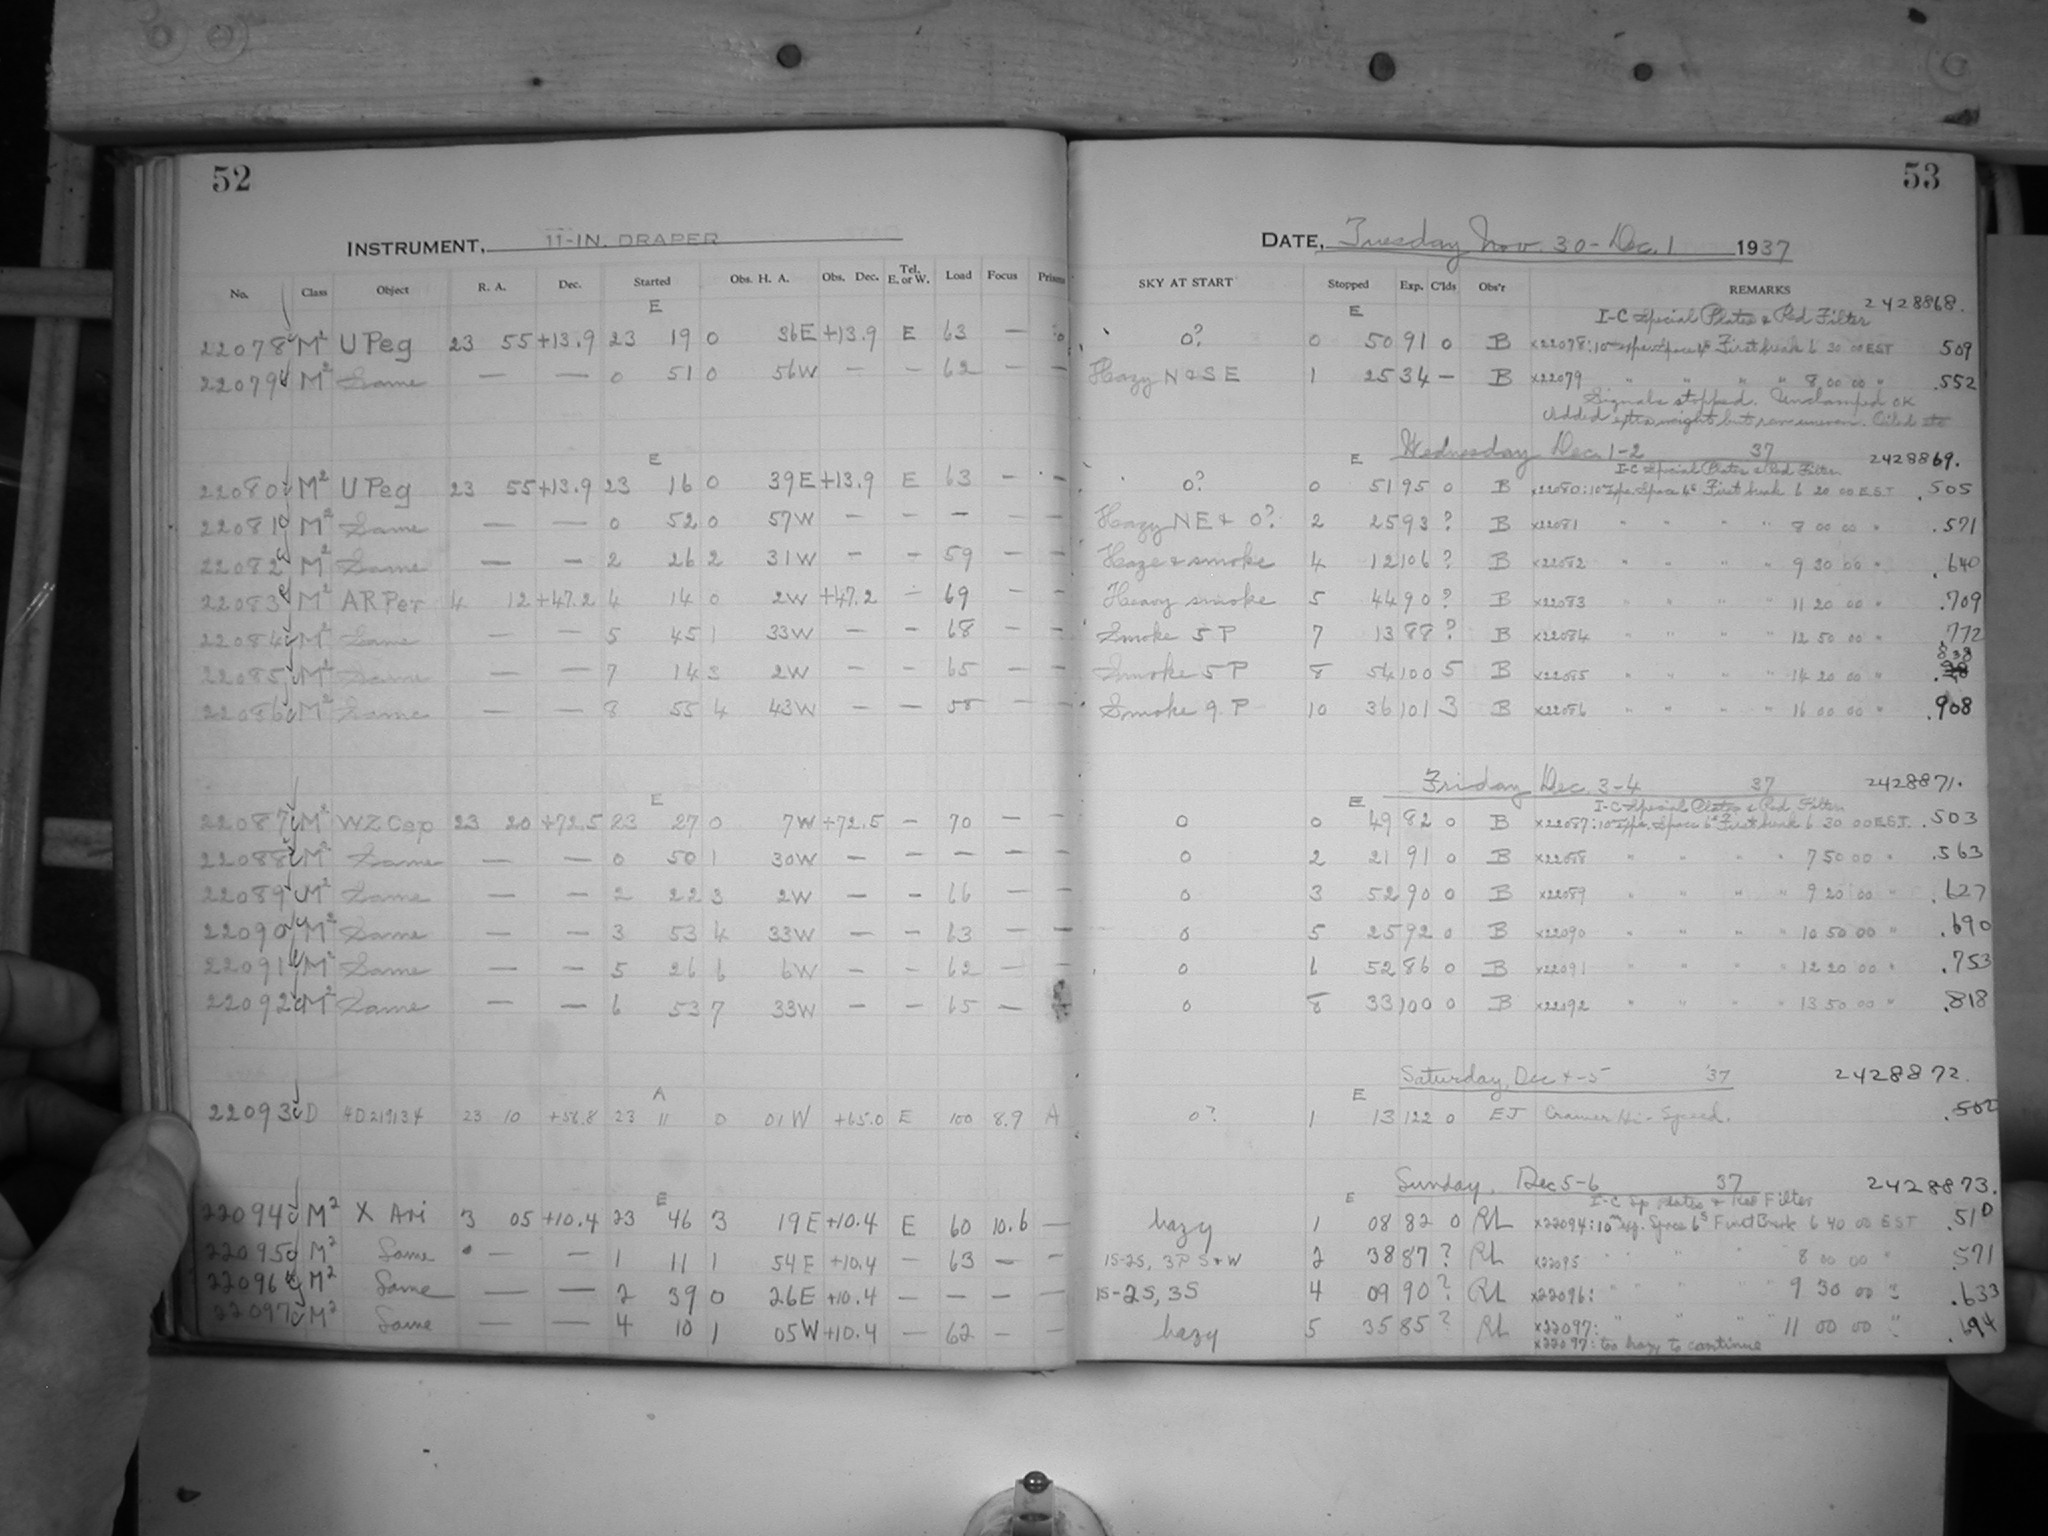 52
INSTRUMENT, 11-IN. DRAPER
No. Class Object R. A. Dec. Started Obs. H. A. Obs. Dec. Tel. E. or W. Load Focus
E
22078 M² U Peg 23 55 +13.9 23 19 0 36E +13.9 E 63 —
22079 M² Same — — 0 51 0 56W — — 62 — —
E
22080 M² U Peg 23 55 +13.9 23 16 0 39E +13.9 E 63 — —
22081 M² Same — — 0 52 0 57W — — — — —
22082 M² Same — — 2 26 2 31W — — 59 — —
22083 M² AR Per 4 12 +47.2 4 14 0 2W +47.2 — 69 — —
22084 M² Same — — 5 45 1 33W — — 68 — —
22085 M² Same — — 7 14 3 2W — — 65 — —
22086 M² Same — — 8 55 4 43W — — 58 — —
E
22087 M² WZ Cep 23 20 +72.5 23 27 0 7W +72.5 — 70 — —
22088 M² Same — — 0 50 1 30W — — — — —
22089 M² Same — — 2 22 3 2W — — 66 — —
22090 M² Same — — 3 53 4 33W — — 63 — —
22091 M² Same — — 5 26 6 6W — — 62 — —
22092 M² Same — — 6 53 7 33W — — 65 —
A
22093 D HD 219134 23 10 +56.8 23 11 0 01W +65.0 E 100 8.9 A
E
22094 M² X Ari 3 05 +10.4 23 46 3 19E +10.4 E 60 10.6 —
22095 M² Same — — 1 11 1 54E +10.4 — 63 — —
22096 M² Same — — 2 39 0 26E +10.4 — — — —
22097 M² Same — — 4 10 1 05W +10.4 — 62 — —
53
DATE, Tuesday Nov. 30 - Dec. 1 1937
SKY AT START Stopped Exp. C'lds Obs'r REMARKS
E I-C Special Plates & Red Filter 2428868.
0? 0 50 91 0 B x22078: First break 6 30 00 EST 509
Hazy N & S E 1 25 34 — B x22079 " " " " 8 00 00 " .552
Signals stopped. Unclamped OK
Added extra weight but ran uneven. Oiled etc
E Wednesday Dec. 1-2 37 2428869.
I-C Special Plates & Red Filter
0? 0 51 95 0 B x22080: First break 6 20 00 EST .505
Hazy NE & 0? 2 25 93 ? B x22081 " " " " 8 00 00 " .571
Haze & smoke 4 12 106 ? B x22082 " " " " 9 30 00 " .640
Heavy smoke 5 44 90 ? B x22083 " " " " 11 20 00 " .709
Smoke 5 P 7 13 88 ? B x22084 " " " " 12 50 00 " .772
Smoke 5 P 8 54 100 5 B x22085 " " " " 14 20 00 " 838
Smoke 9 P 10 36 101 3 B x22086 " " " " 16 00 00 " .908
Friday Dec. 3-4 37 2428871.
E I-C Special Plates & Red Filter
0 0 49 82 0 B x22087: 10 exp. Space 6ˢ First break 6 30 00 EST. .503
0 2 21 91 0 B x22088 " " " " 7 50 00 " .563
0 3 52 90 0 B x22089 " " " " 9 20 00 " .627
0 5 25 92 0 B x22090 " " " " 10 50 00 " .690
0 6 52 86 0 B x22091 " " " " 12 20 00 " .753
0 8 33 100 0 B x22092 " " " " 13 50 00 " .818
Saturday, Dec 4-5 '37 2428872.
E
0? 1 13 122 0 EJ Cramer Hi-Speed. .502
Sunday, Dec 5-6 37 2428873.
E I-C Sp Plates & Red Filter
hazy 1 08 82 0 RL x22094: 10ᵐ exp. Space 6ˢ First Break 6 40 00 EST .510
1S-2S, 3P S+W 2 38 87 ? RL x22095 " " " " 8 00 00 " .571
1S-2S, 3S 4 09 90 ? RL x22096: " " " " 9 30 00 " .633
hazy 5 35 85 ? RL x22097: " " " " 11 00 00 " .694
x22097: too hazy to continue